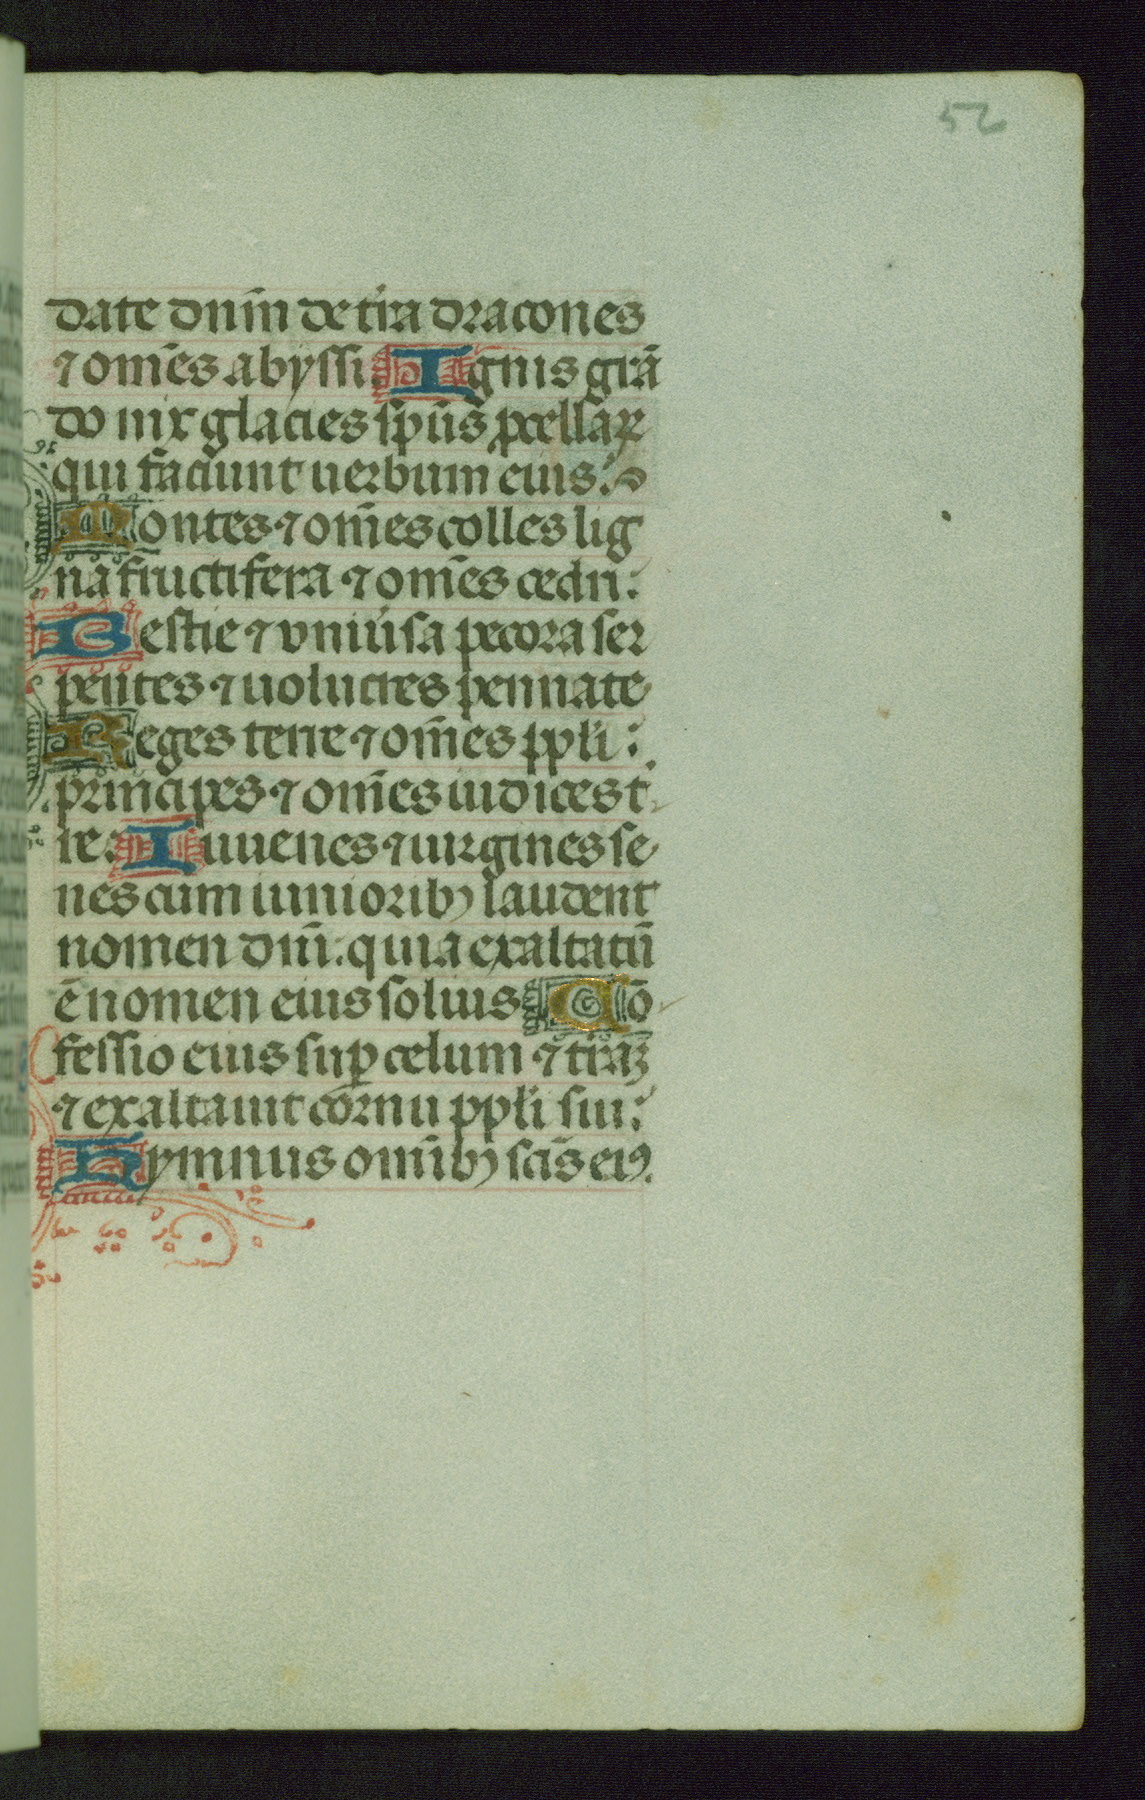 52
date dnm̄ de tr̄ra dracones
⁊ om̄es abyssi. Ignis grā
do nix glacies sp̄us ꝓcellaꝝ
qui faciunt uerbum eius:
Montes ⁊ om̄es colles lig
na fructifera ⁊ om̄es cedri:
Bestie ⁊ vniu̾sa pecora ser
pentes ⁊ uolucres pennate
Reges terre ⁊ om̄es ppl̄i:
principes ⁊ om̄es iudices t
re. Iuuenes ⁊ uirgines se
nes cum iunioribꝫ laudent
nomen dn̄i: quia exaltatū
ē nomen eius solius Cō
fessio eius suꝑ celum ⁊ tr̄aꝫ
⁊ exaltauit cornu ppl̄i sui:
Hymnus om̄ibꝫ sc̄is eiꝰ.